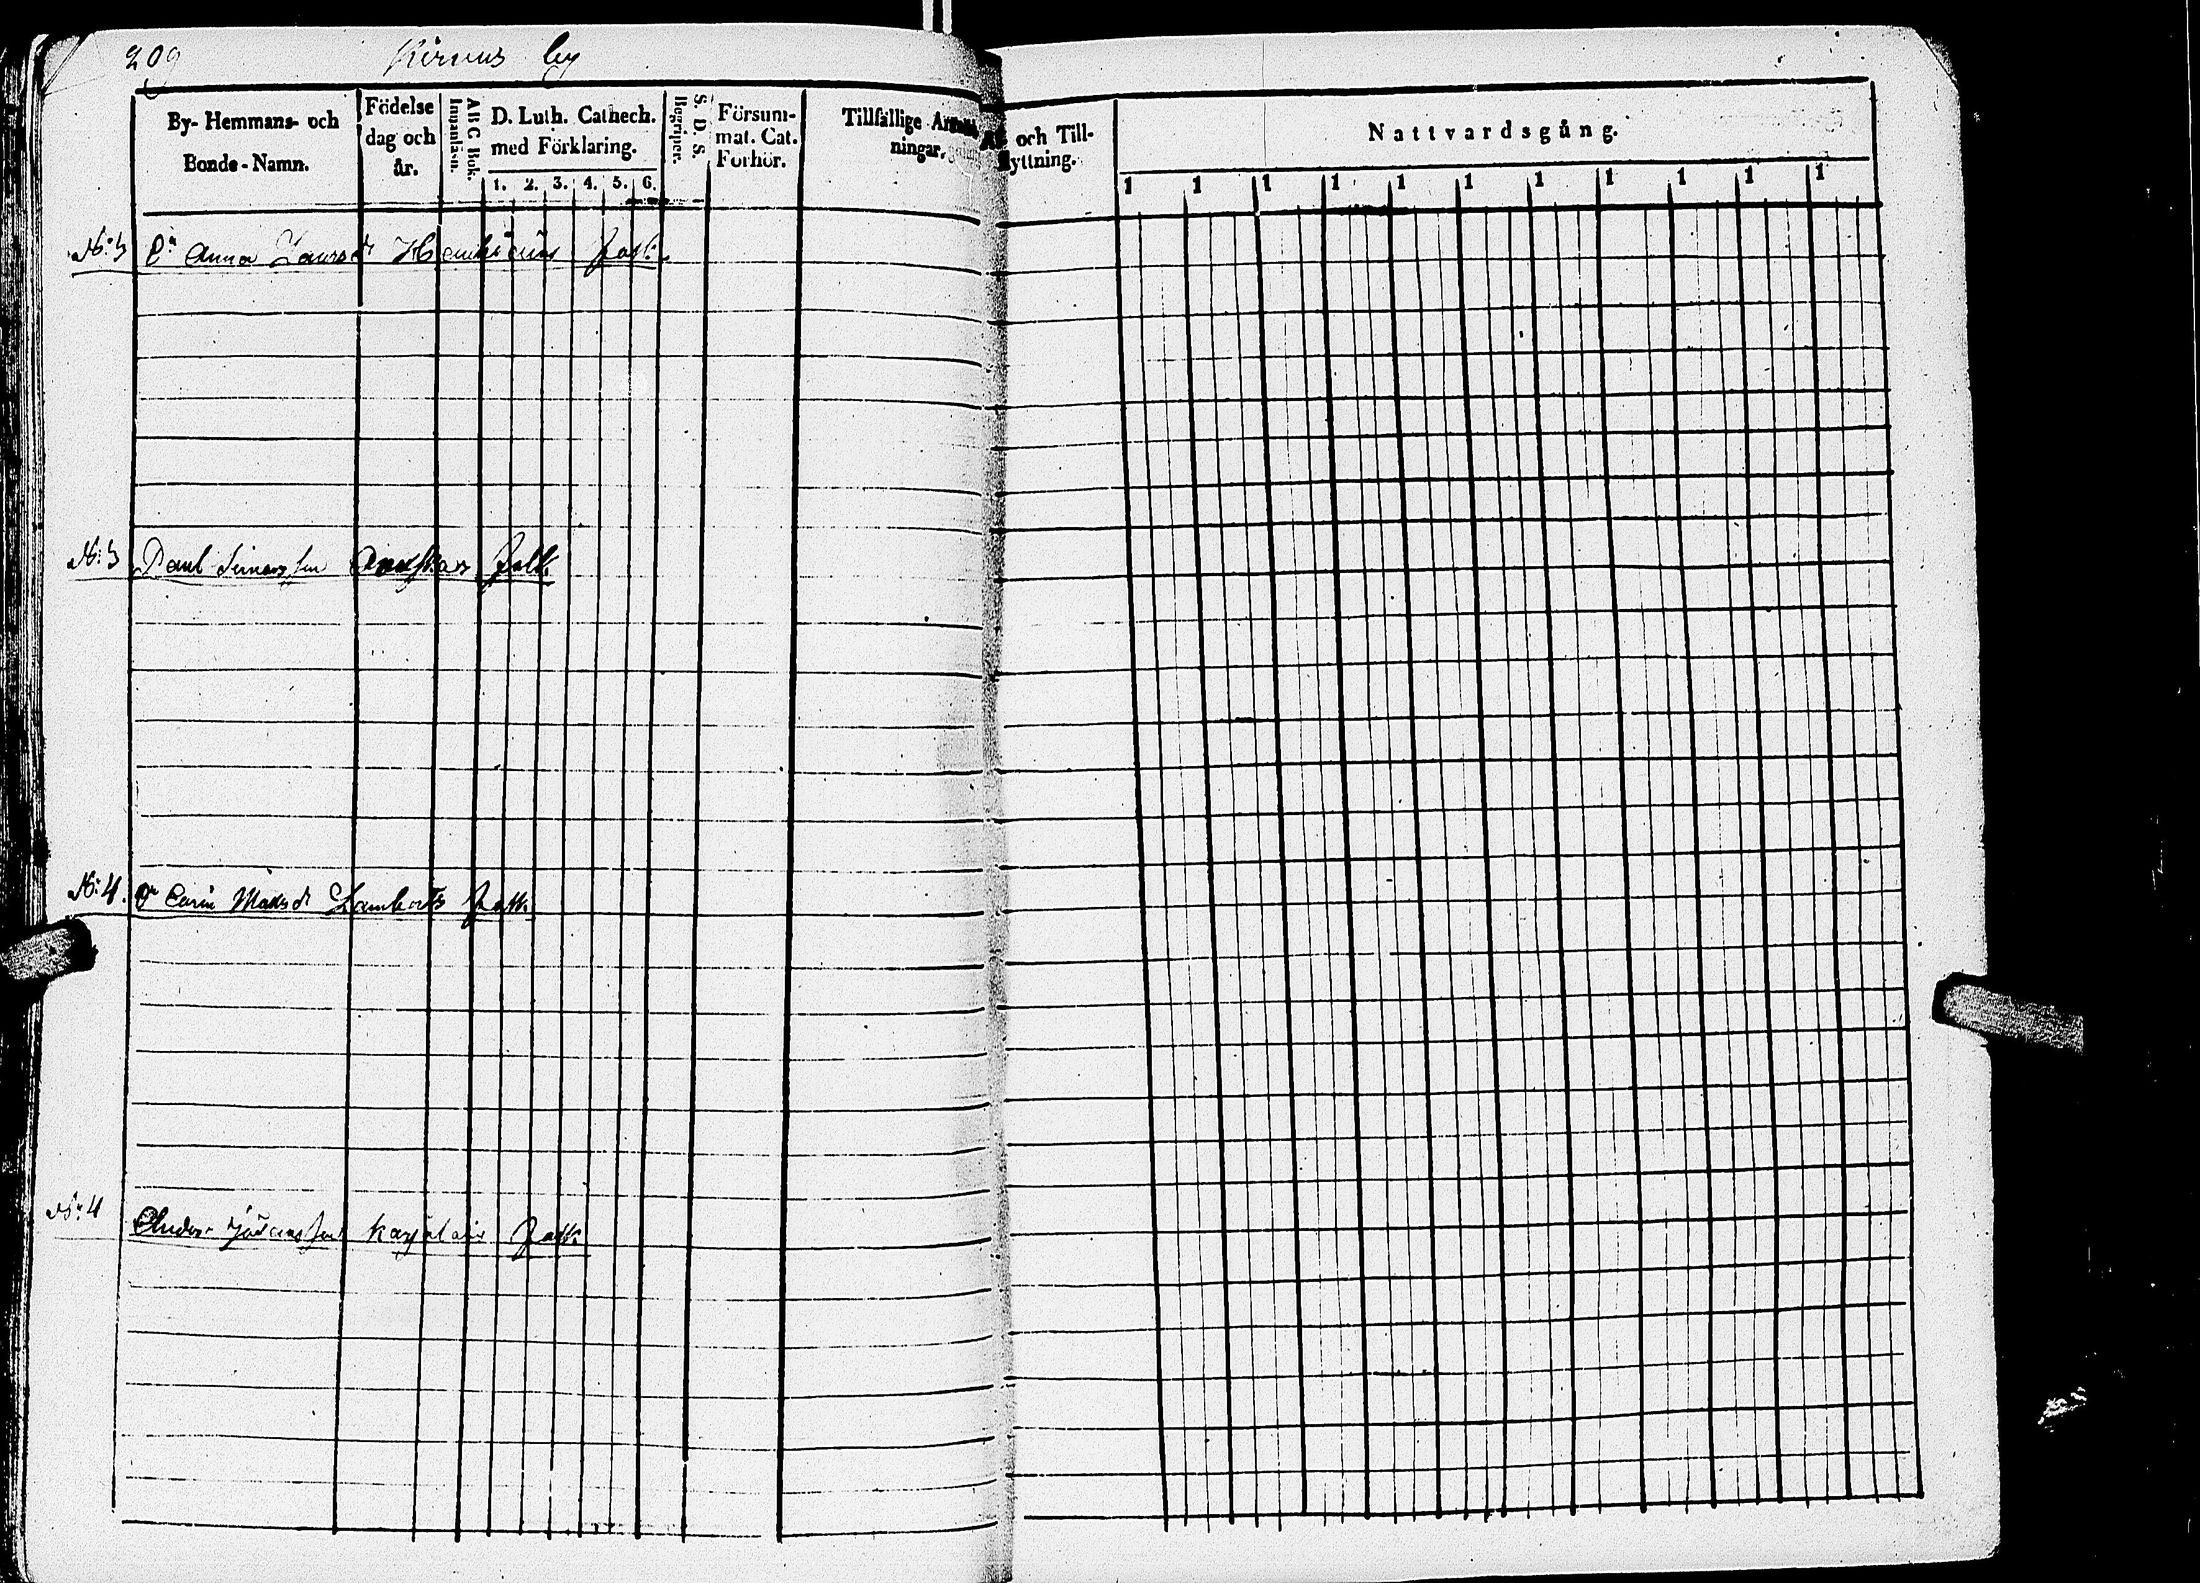 209 Kirvus by
By- Hemmans- och Bonde-Namn.
Födelse dag och år.
A B C Bok. Innanläsn.
D. Luth. Cathech. med Förklaring.
1. 2. 3. 4. 5. 6.
S. D. S. Begriper.
Försum- mat. Cat. Forhör.
Tillfällige Anmärk- ningar.
Af och Till- flyttning.
Nattvardsgång.
1 1 1 1 1 1 1 1 1 1 1
No: 3 Anna Larsd: folk
No: 3 Paul folk
No: 4. Carin Matsd: Lamberts folk
No: 4 Anders Karjalais folk